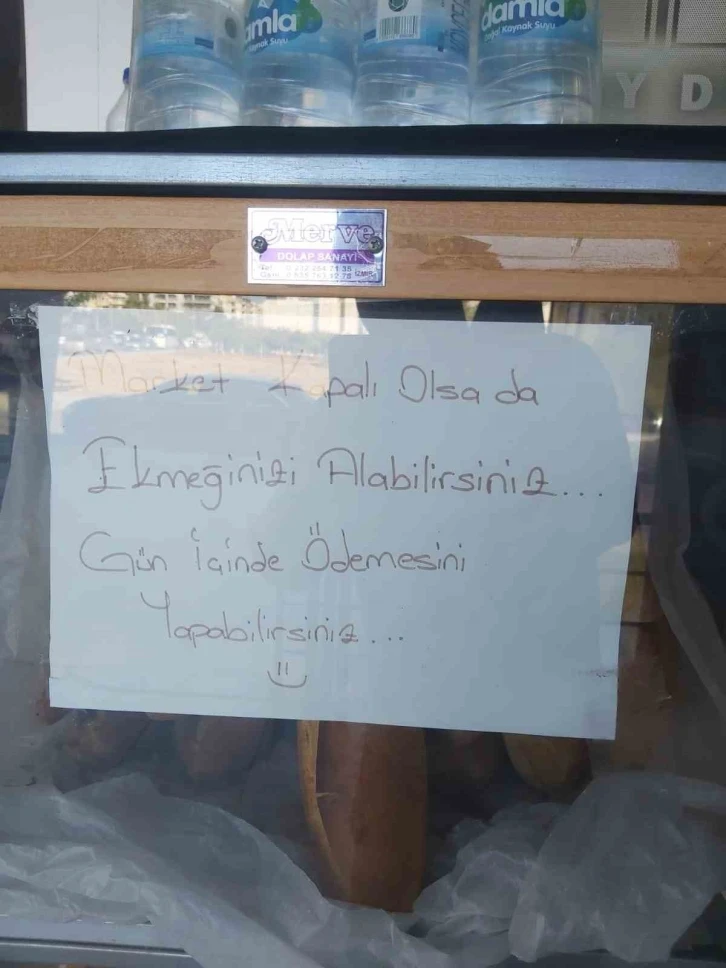 damla
damla
Doğal Kaynak Suyu
Y D
Merve
DOLAP SANAYİ
İZMİR
Market Kapalı Olsa da
Ekmeğinizi Alabilirsiniz...
Gün İçinde Ödemesini
Yapabilirsiniz...